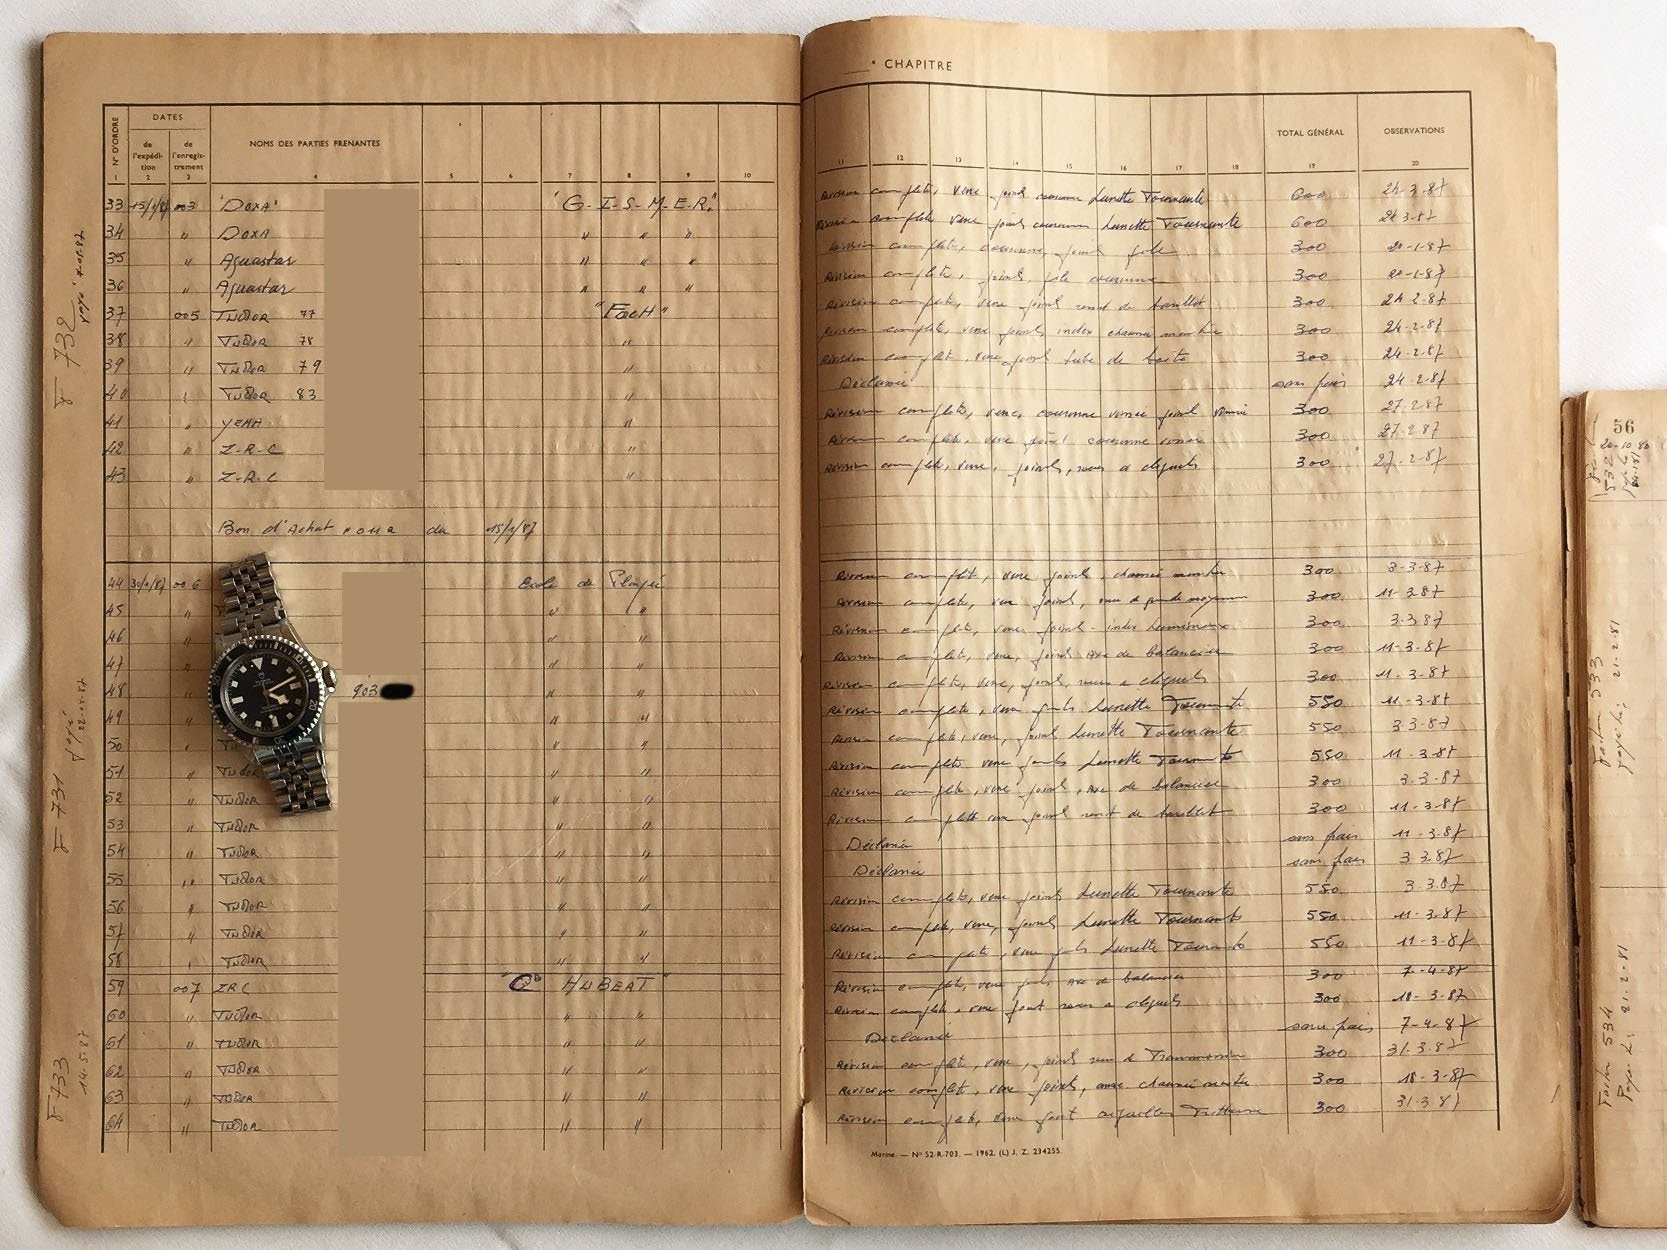 ° CHAPITRE
N° D'ORDRE DATES NOMS DES PARTIES PRENANTES TOTAL GÉNÉRAL OBSERVATIONS
de l'expédition de l'enregistrement
1 2 3 4 5 6 7 8 9 10 11 12 13 14 15 16 17 18 19 20
33 15/1/87 003 "DOXA" "G-I-S-M-E-R." Révision complète, verre joint couronne Lunette Tournante 600 24-3-87
34 " DOXA " " " Révision complète verre joint couronne Lunette Tournante 600 24 3-87
35 " Aquastar " " " Révision complète, couronne, joint pile 300 20-1-87
36 " Aquastar " " " Révision complète, joint, pile couronne 300 20-1-87
37 005 TUDOR 77 "FOCH" Révision complète, verre joint rount de barillet 300 24-2-87
38 " TUDOR 78 " Révision complète, verre joint index chaussée montée 300 24-2-87
39 " TUDOR 79 " Révision complète, verre joint tube de boite 300 24-2-87
40 " TUDOR 83 " Déclassée sans frais 24-2-87
41 " YEMA " Révision complète, verre, couronne joint 300 27-2-87
42 " Z-R-C " Révision complète, verre joint couronne 300 27-2-87
43 " Z-R-C " Révision complète, verre, joints, roue à cliquets 300 27-2-87
Bon d'Achat du 15/1/87
44 30/1/87 006 Ecole de Plongée Révision complète, verre joints, chaussée montée 300 3-3-87
45 " " " Révision complète, verre joints, roue de grande moyenne 300 11-3-87
46 " " " Révision complète, verre joints index lumineux 300 3-3-87
47 " " " Révision complète, verre, joints Axe de balancier 300 11-3-87
48 " 903 " " Révision complète, verre, joints, roue à cliquets 300 11-3-87
49 " " " Révision complète, verre joints Lunette Tournante 550 11-3-87
50 " " " Révision complète, verre, joints Lunette Tournante 550 3-3-87
51 " TUDOR " " Révision complète verre joints Lunette Tournante 550 11-3-87
52 " TUDOR " " Révision complète, verre joint, Axe de balancier 300 3-3-87
53 " TUDOR " " Révision complète verre joint rount de barillet 300 11-3-87
54 " TUDOR " " Déclassée sans frais 11-3-87
55 " TUDOR " " Déclassée sans frais 3-3-87
56 " TUDOR " " Révision complète, verre joints Lunette Tournante 550 3-3-87
57 " TUDOR " " Révision complète, verre, joints Lunette Tournante 550 11-3-87
58 " TUDOR " " Révision complète, verre joints Lunette Tournante 550 11-3-87
59 007 ZRC "Ct HUBERT" Révision complète, verre joints Axe de balancier 300 7-4-87
60 " TUDOR " " Révision complète, verre joint roue à cliquets 300 18-3-87
61 " TUDOR " " Déclassée sans frais 7-4-87
62 " TUDOR " " Révision complète, verre, joint roue de Transmission 300 31-3-87
63 " TUDOR " " Révision complète, verre joints, chaussée montée 300 18-3-87
64 " TUDOR " " Révision complète, verre joint aiguilles Trotteuse 300 31-3-87
Marine. — N° 52-R-703. — 1962. (L) J. Z. 234255.
F 732
payé
F 731
payé 22-04-87
F 733
14-5-87
56
532
Factur 533
payé le: 21-2-81
Factur 534
Payé le: 21-2-81